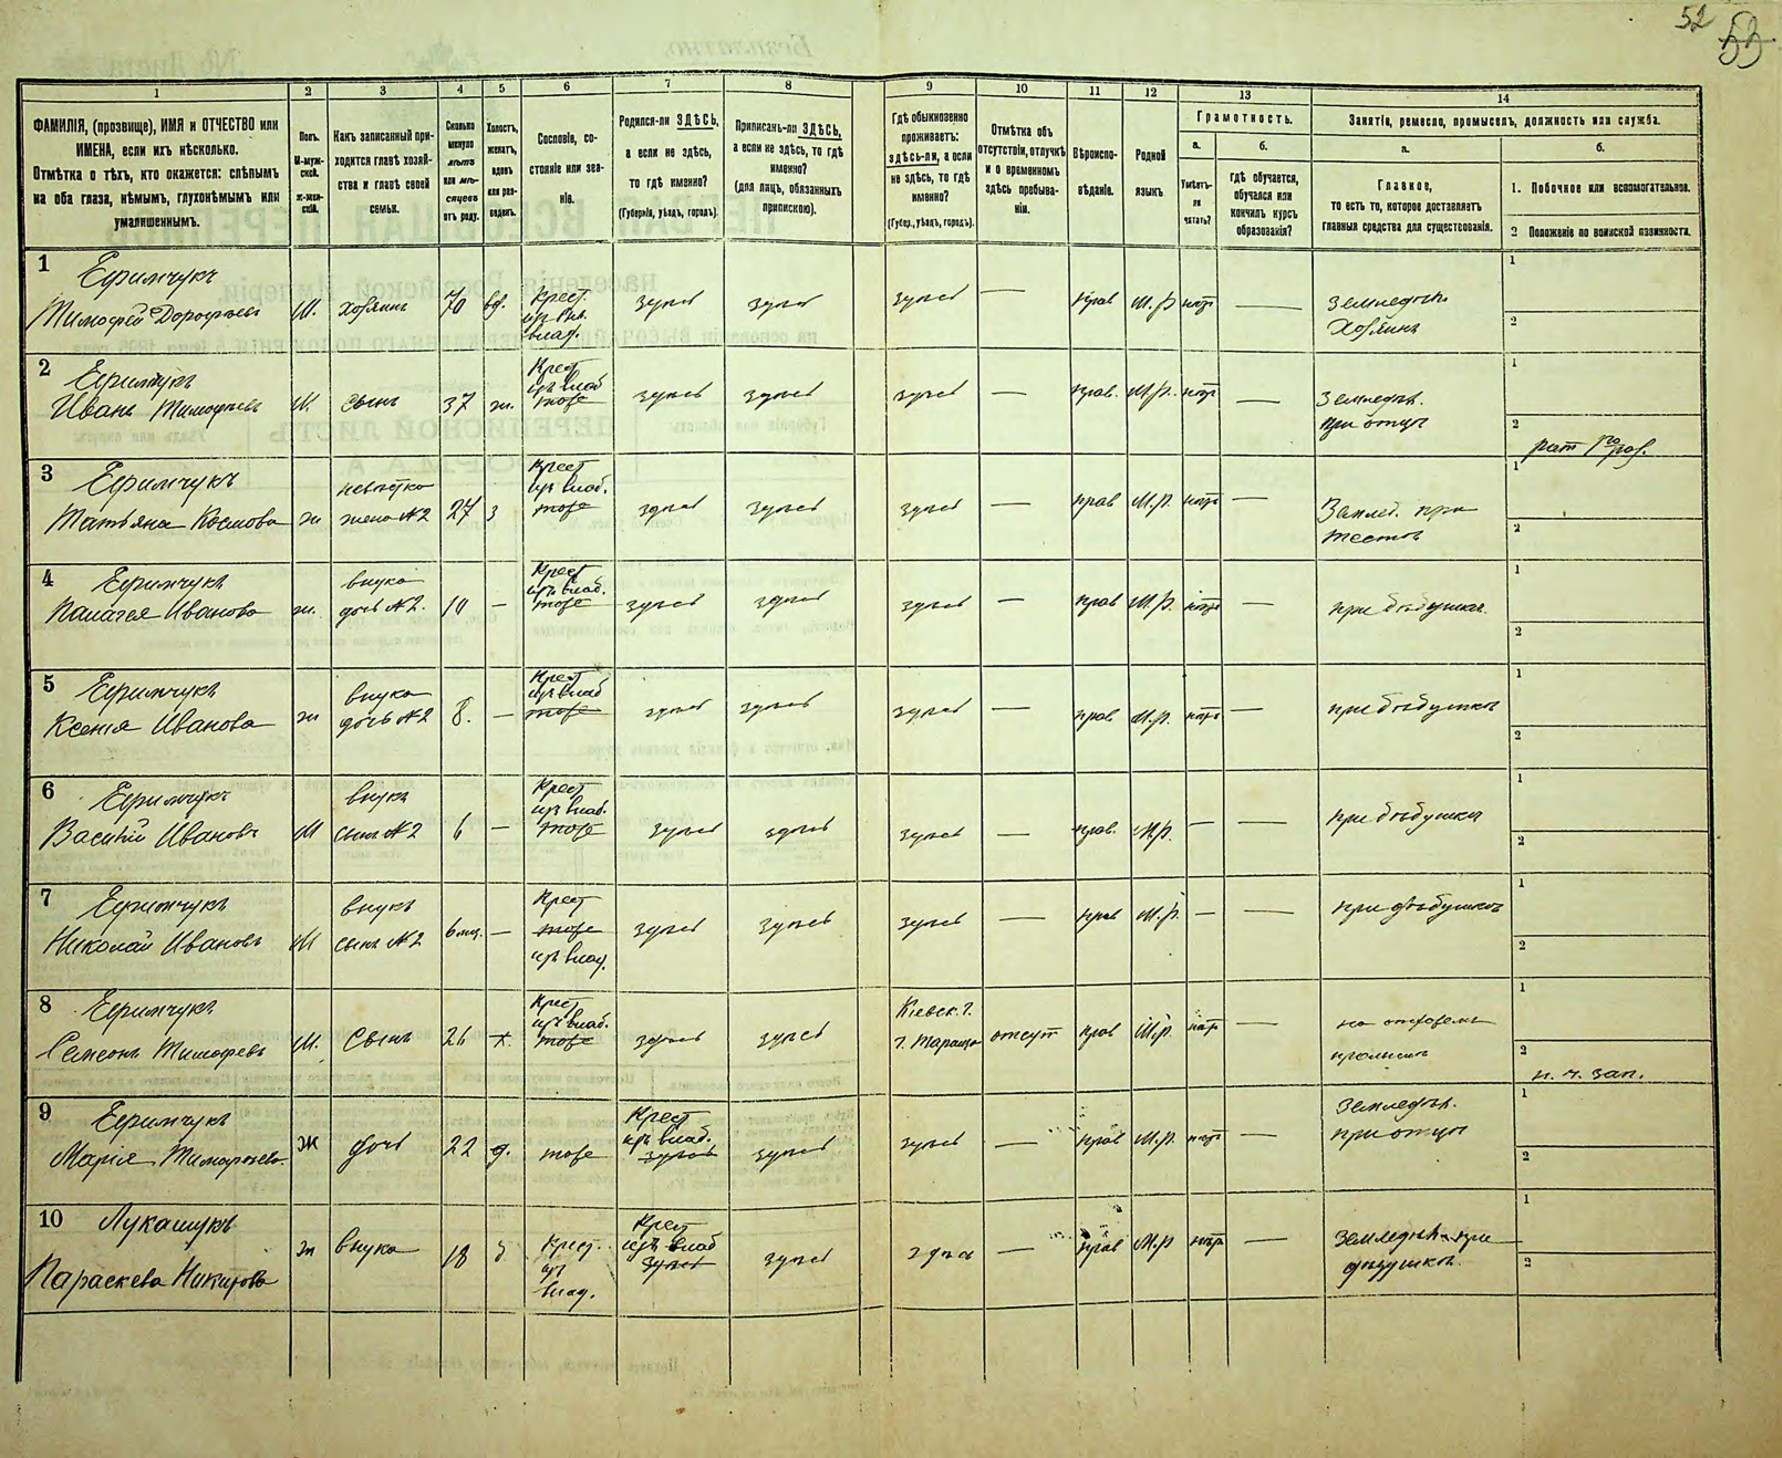 52 53
1 2 3 4 5 6 7 8 9 10 11 12 13 14
ФАМИЛІЯ, (прозвище), ИМЯ и ОТЧЕСТВО или ИМЕНА, если ихъ нѣсколько.
Отмѣтка о тѣхъ, кто окажется: слѣпымъ на оба глаза, нѣмымъ, глухонѣмымъ или умалишеннымъ.
Полъ.
М-муж-
ской.
Ж-жен-
скій.
Какъ записанный при-
ходится главѣ хозяй-
ства и главѣ своей
семьи.
Сколько
минуло
лѣтъ
или мѣ-
сяцевъ
отъ роду.
Холостъ,
женатъ,
вдовъ
или раз-
веденъ.
Сословіе, со-
стояніе или зва-
ніе.
Родился-ли ЗДѢСЬ,
а если не здѣсь,
то гдѣ именно?
(Губернія, уѣздъ, городъ).
Приписанъ-ли ЗДѢСЬ,
а если не здѣсь, то гдѣ
именно?
(для лицъ, обязанныхъ
припискою).
Гдѣ обыкновенно
проживаетъ:
здѣсь-ли, а если
не здѣсь, то гдѣ
именно?
(Губер., уѣздъ, городъ).
Отмѣтка объ
отсутствіи, отлучкѣ
и о временномъ
здѣсь пребыва-
ніи.
Вѣроиспо-
вѣданіе.
Родной
языкъ.
Грамотность.
а.
Умѣетъ-
ли
читать?
б.
Гдѣ обучается,
обучался или
кончилъ курсъ
образованія?
Занятіе, ремесло, промыселъ, должность или служба.
а.
Главное,
то есть то, которое доставляетъ
главныя средства для существованія.
б.
1. Побочное или вспомогательное.
2 Положеніе по воинской повинности.
1 Ефимчукъ
Тимофей Дорофѣевъ М. хозяинъ 70 вд. Крест. изъ влад. здѣсь здѣсь здѣсь — прав М.р нѣтъ — земледѣл. Хозяинъ
1
2
2 Ефимчукъ
Иванъ Тимофѣевъ М. сынъ 37 ж. Крест изъ влад тоже здѣсь здѣсь здѣсь — прав. М.р. нѣтъ — земледѣл. при отцѣ
1
2
3 Ефимчукъ
Татьяна Космова ж невѣстка жена №2 27 з Крест изъ влад. тоже здѣсь здѣсь здѣсь — прав М.р. нѣтъ — Землед. при тестѣ
1
2
4 Ефимчукъ
Палагея Иванова ж. внука дочь №2. 10 — Крест изъ влад. тоже здѣсь здѣсь здѣсь — прав М.р. нѣтъ — при дѣдушкѣ.
1
2
5 Ефимчукъ
Ксенія Иванова ж внука дочь №2 8. — Крест изъ влад тоже здѣсь здѣсь здѣсь — прав М.р. нѣтъ — при дѣдушкѣ
1
2
6 Ефимчукъ
Василій Ивановъ М внукъ сынъ №2 6 — Крест изъ влад. тоже здѣсь здѣсь здѣсь — прав. М.р. — — при дѣдушкѣ
1
2
7 Ефимчукъ
Николай Ивановъ М внукъ сынъ №2 6 мѣс. — Крест тоже изъ влад. здѣсь здѣсь здѣсь — прав М.р. — — при дѣдушкѣ
1
2
8 Ефимчукъ
Семсонъ Тимофѣевъ М. Сынъ 26 х. Крест изъ влад. тоже здѣсь здѣсь Кіевск. г. г. Тараща отсут прав М.р. нѣтъ —
1
2
9 Ефимчукъ
Марія Тимофѣева Ж дочь 22 д. тоже Крест изъ влад. здѣсь здѣсь здѣсь — прав М.р. нѣтъ — Земледѣл. при отцѣ
1
2
10 Лукашукъ
Параскева Никитова ж внука 18 д Крест. изъ влад. Крест изъ влад здѣсь здѣсь здѣсь — прав М.р нѣтъ — земледѣл. при дѣдушкѣ.
1
2